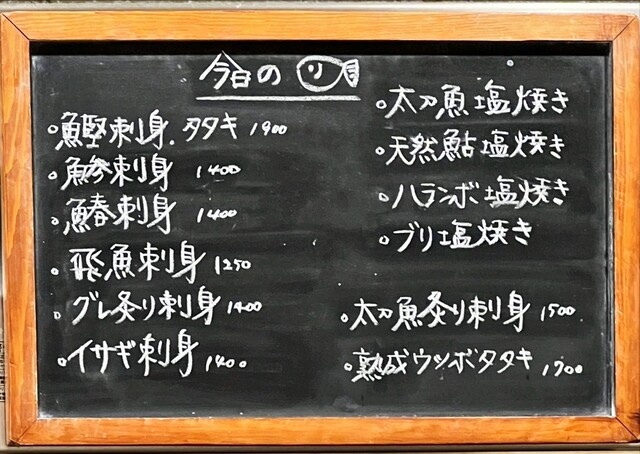 今日の
鰹刺身.タタキ 1900
鯵刺身 1400
鰆刺身 1400
飛魚刺身 1250
グレ炙り刺身 1400
イサギ刺身 1400
太刀魚塩焼き
天然鮎塩焼き
ハランボ塩焼き
ブリ塩焼き
太刀魚炙り刺身 1500
熟成ウツボタタキ 1700